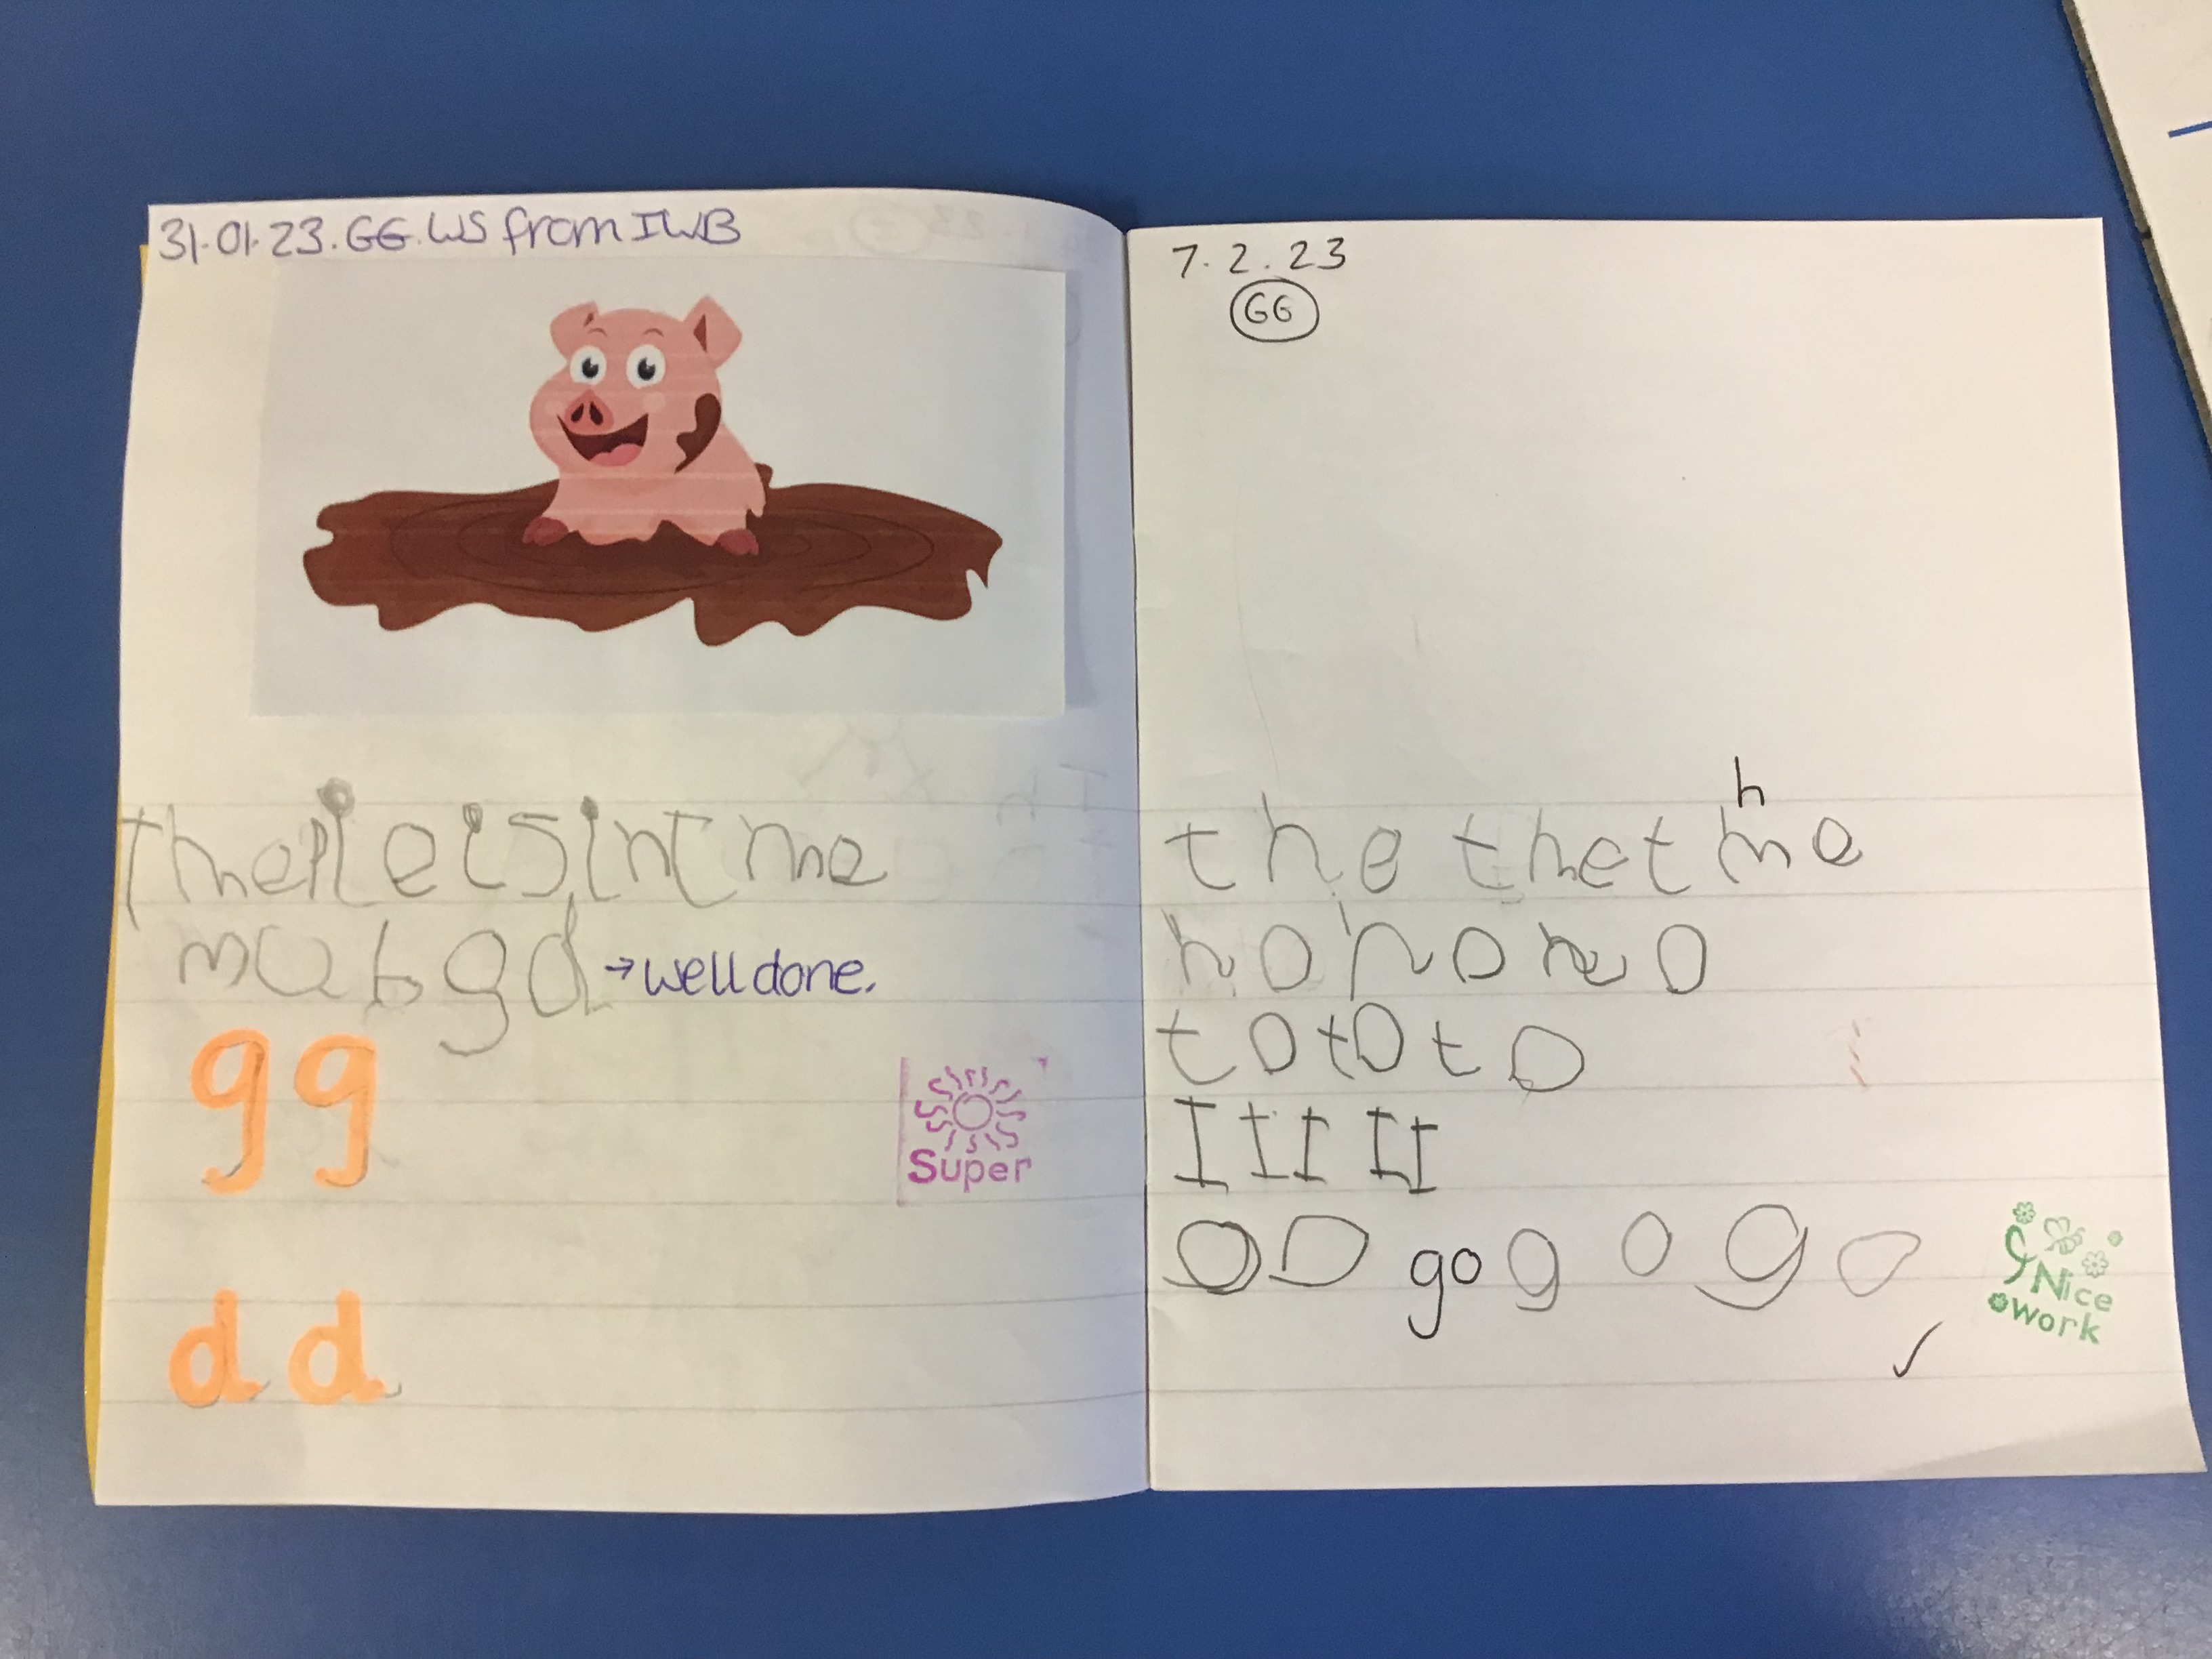 31.01.23. GG. WS from IWB
the pie is in t me
mubgd → well done.
gg
Super
dd
7. 2. 23
GG
h
the the t me
no no no
to to to
I I I I I
go go go go
Nice
work